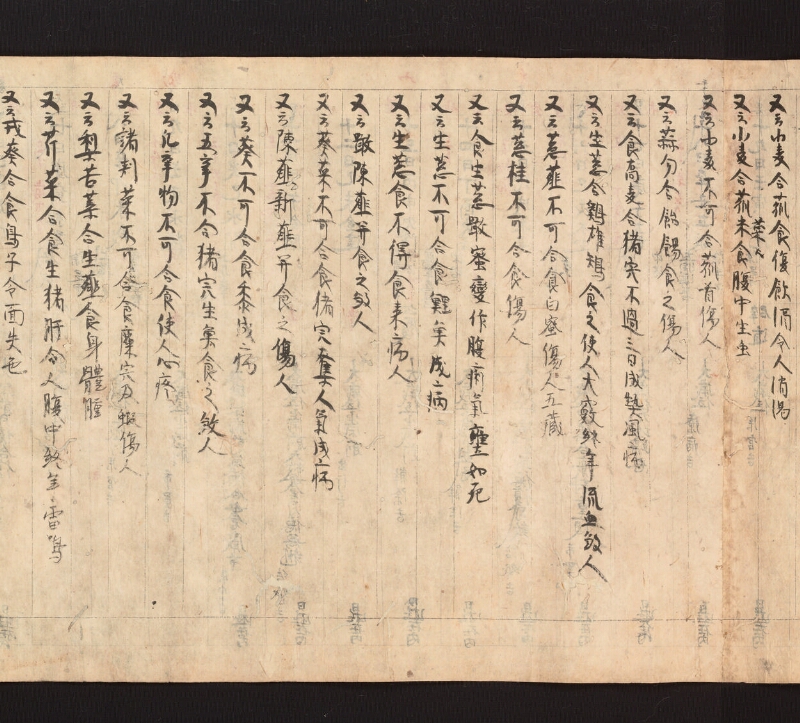 又云小麦合菰食復飲酒令人消渇
又云小麦合菰米食腹中生虫
菜欠
又云小麦不可合菰首傷人
又云蒜勿合飴餳食之傷人
又云食喬麦合猪宍不過三日成熱風病
又云生葱合鷄雄雉食之使人大竅終年流血煞人
又云葱薤不可合食白蜜傷人五蔵
又云葱桂不可合食傷人
又云食生葱噉蜜變作腹痢氣壅如死
又云生葱不可合食鯉魚成病
又云生葱食不得食枣病人
又云噉陳薤并食之煞人
又云葵菜不可合食猪宍奪人氣成病
又云陳薤新薤并食之傷人
又云葵不可合食黍成病
又云五辛不合猪宍生魚食之煞人
又云凡辛物不可合食使人心疼
又云諸刺菜不可合食麋宍及蝦傷人
又云梨苦菜合生薤食身體腫
又云芹菜合食生猪肝令人腹中終年雷鳴
又云戎葵合食鳥子令面失色